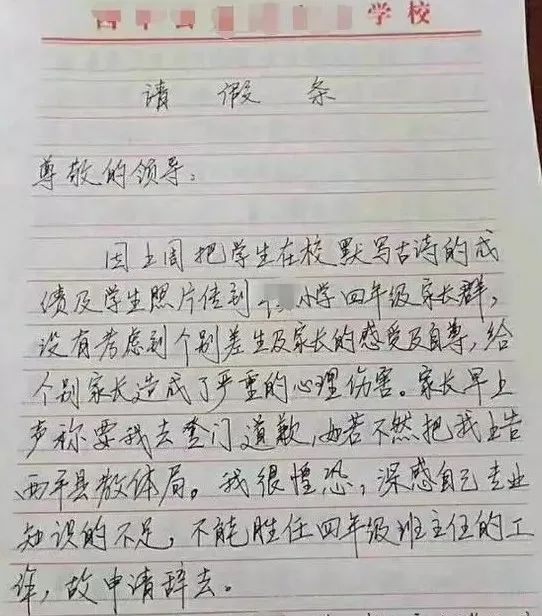 学校
请假条
尊敬的领导:
因上周把学生在校默写古诗的成
绩及学生照片传到小学四年级家长群,
没有考虑到个别差生及家长的感受及自尊,给
个别家长造成了严重的心理伤害。家长早上
声称要我去登门道歉,如若不然把我上告
西平县教体局。我很惶恐,深感自己专业
知识的不足,不能胜任四年级班主任的工
作,故申请辞去。